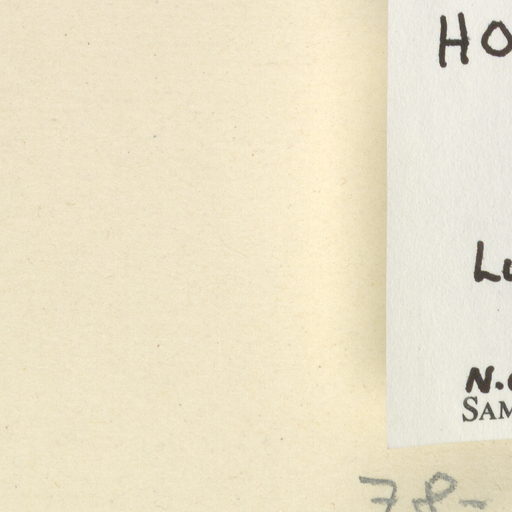 HO
Lu
N.
SAM
78-